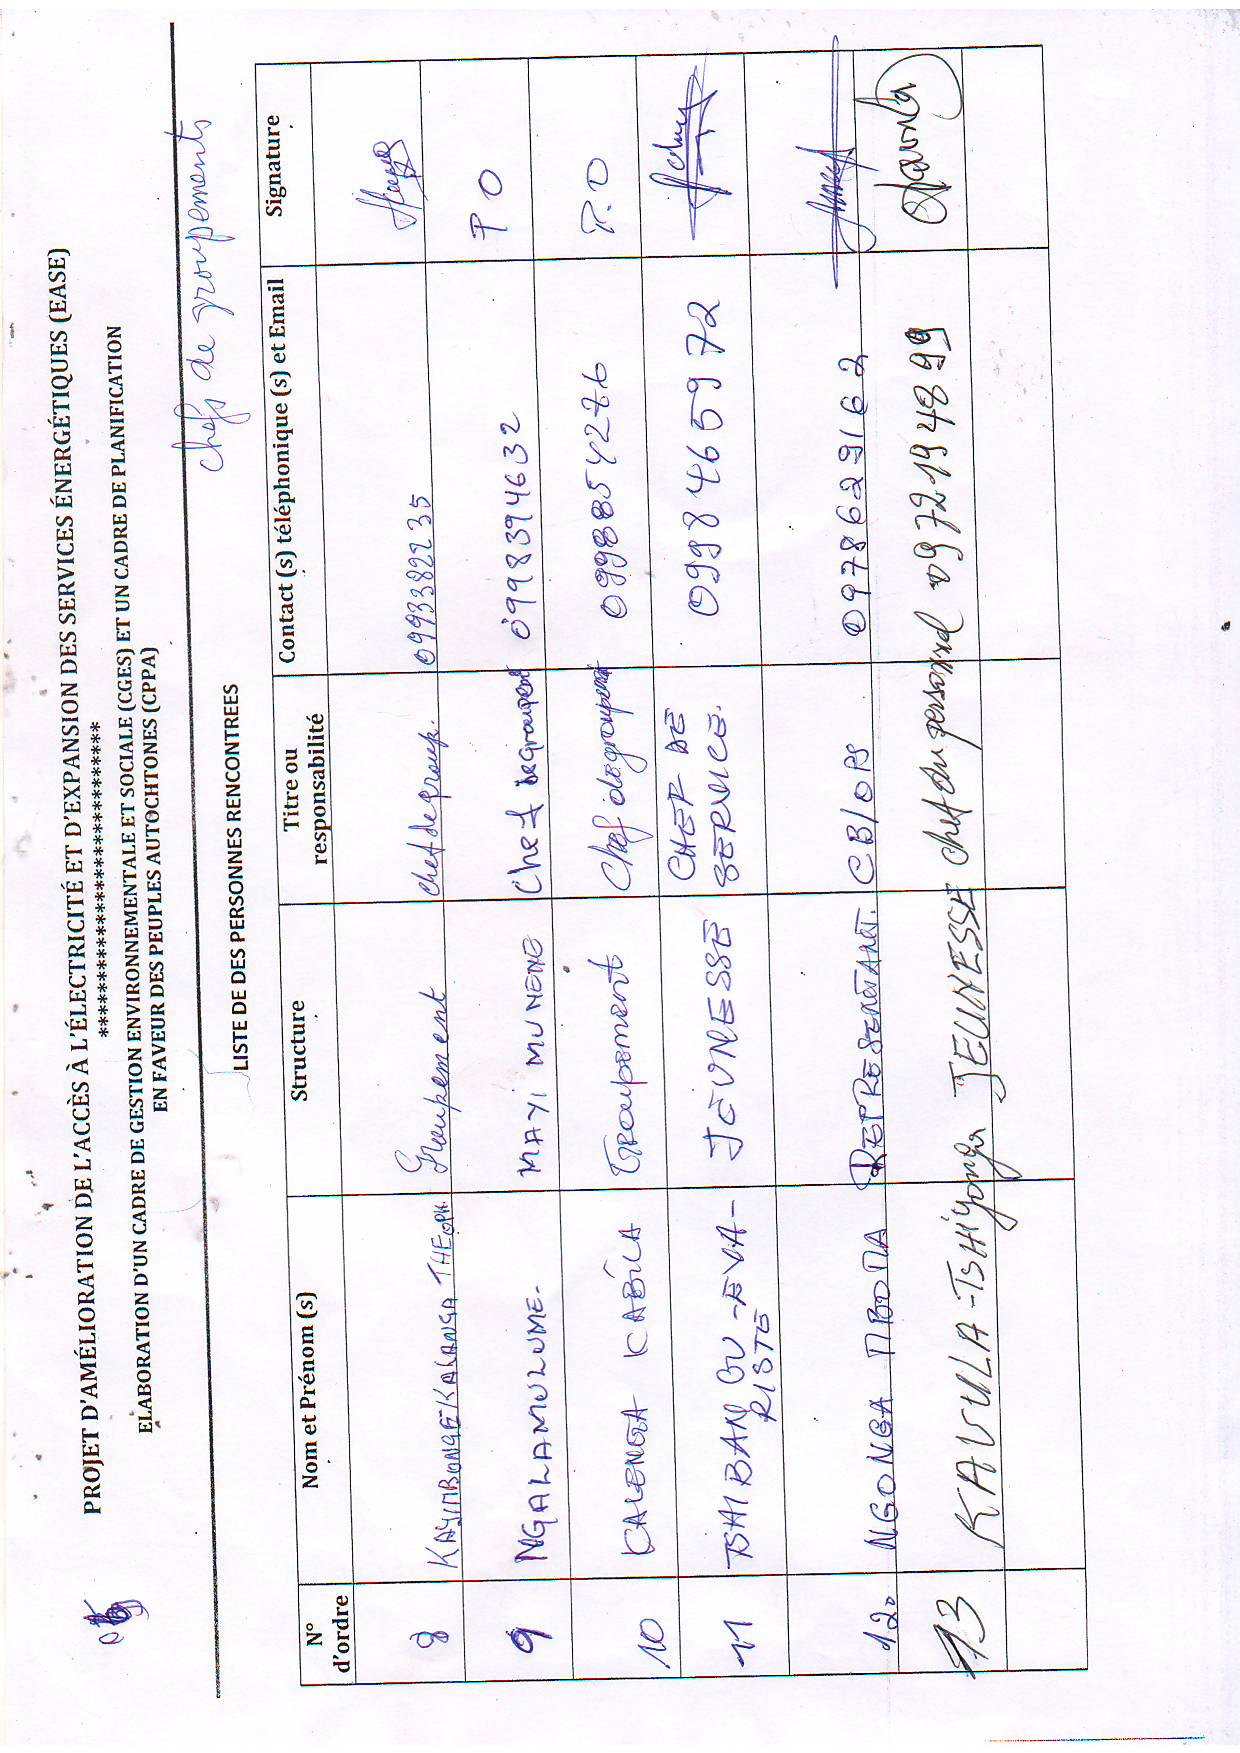 PROJET D'AMÉLIORATION DE L'ACCÈS À L'ÉLECTRICITÉ ET D'EXPANSION DES SERVICES ÉNERGÉTIQUES (EASE)
********************************
ELABORATION D'UN CADRE DE GESTION ENVIRONNEMENTALE ET SOCIALE (CGES) ET UN CADRE DE PLANIFICATION
EN FAVEUR DES PEUPLES AUTOCHTONES (CPPA)
chefs de groupements
LISTE DE DES PERSONNES RENCONTREES
N° d'ordre Nom et Prénom (s) Structure Titre ou responsabilité Contact (s) téléphonique (s) et Email Signature
8 KAYIMBONGE KALANGA THEOPH. Groupement chef de group. 0993382235
9 NGALAMULUME. MAYI MUNENE Chef de groupement 0998394632 P O
10 KALENGA KABILA Groupement Chef de groupement 0998854276 P.O
11 TSHIBANGU-EVA-
RISTE JEUNESSE CHEF DE
SERVICE. 0998465972
12. NGONGA MBOMA REPRESENTANT. CB/OPS 0978629162
13 KAVULA-TSHIYONGA JEUNESSE chef du personnel 0972194899